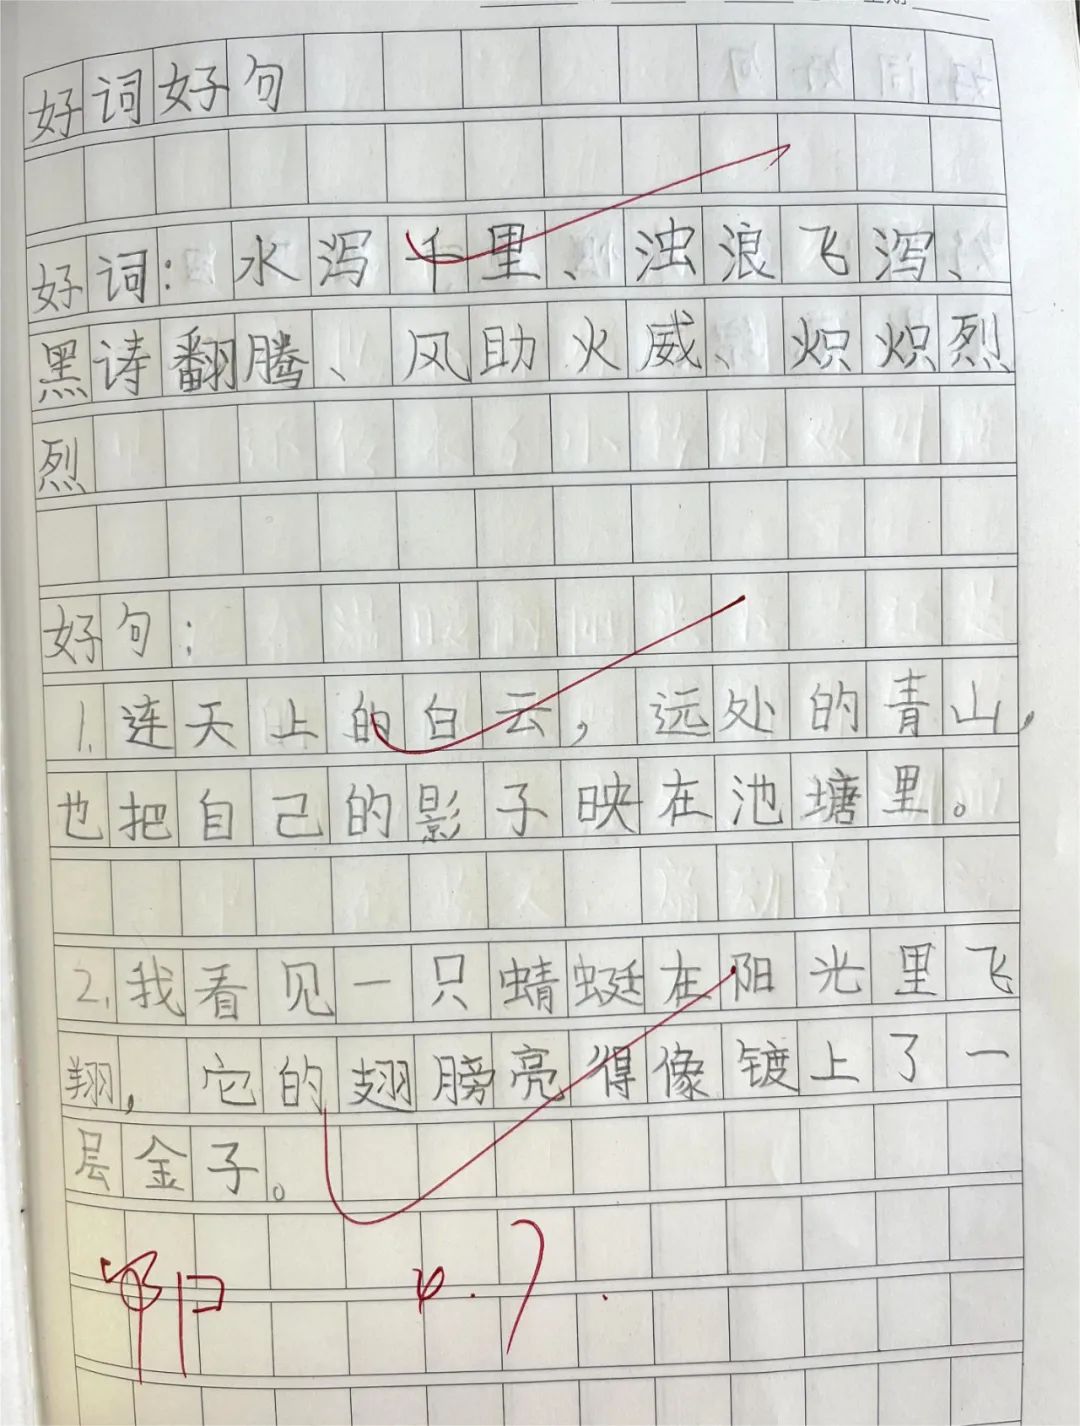 好词好句
好词：水泻千里、浊浪飞泻、
黑诗翻腾、风助火威、炽炽烈
烈
好句：
1.连天上的白云，远处的青山，
也把自己的影子映在池塘里。
2.我看见一只蜻蜓在阳光里飞
翔，它的翅膀亮得像镀上了一
层金子。